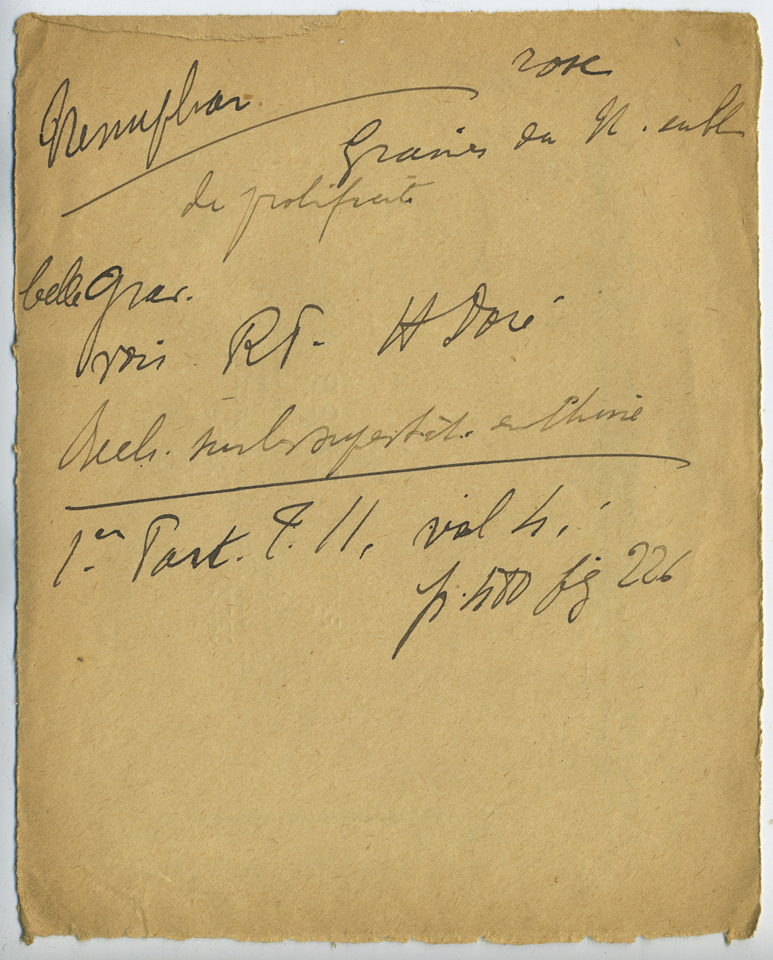 Nenuphar rose
Graines du N.
de prolificité
belle grav.
vois RP. H Doré
Rech. sur les superstit. en Chine
1er Part. T. II, vol 4,
p. 480 fig 226